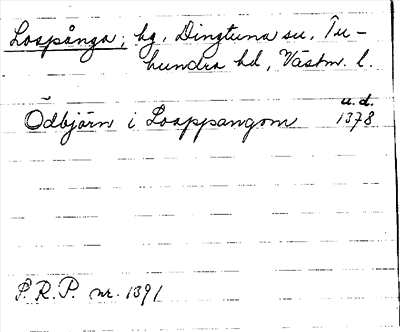 Loapånga, by, Dingtuna sn, Tu-
hundra hd, Västm. l.
u.d.
Ödbjörn i Loappangom 1378
P.R.P. nr. 1391